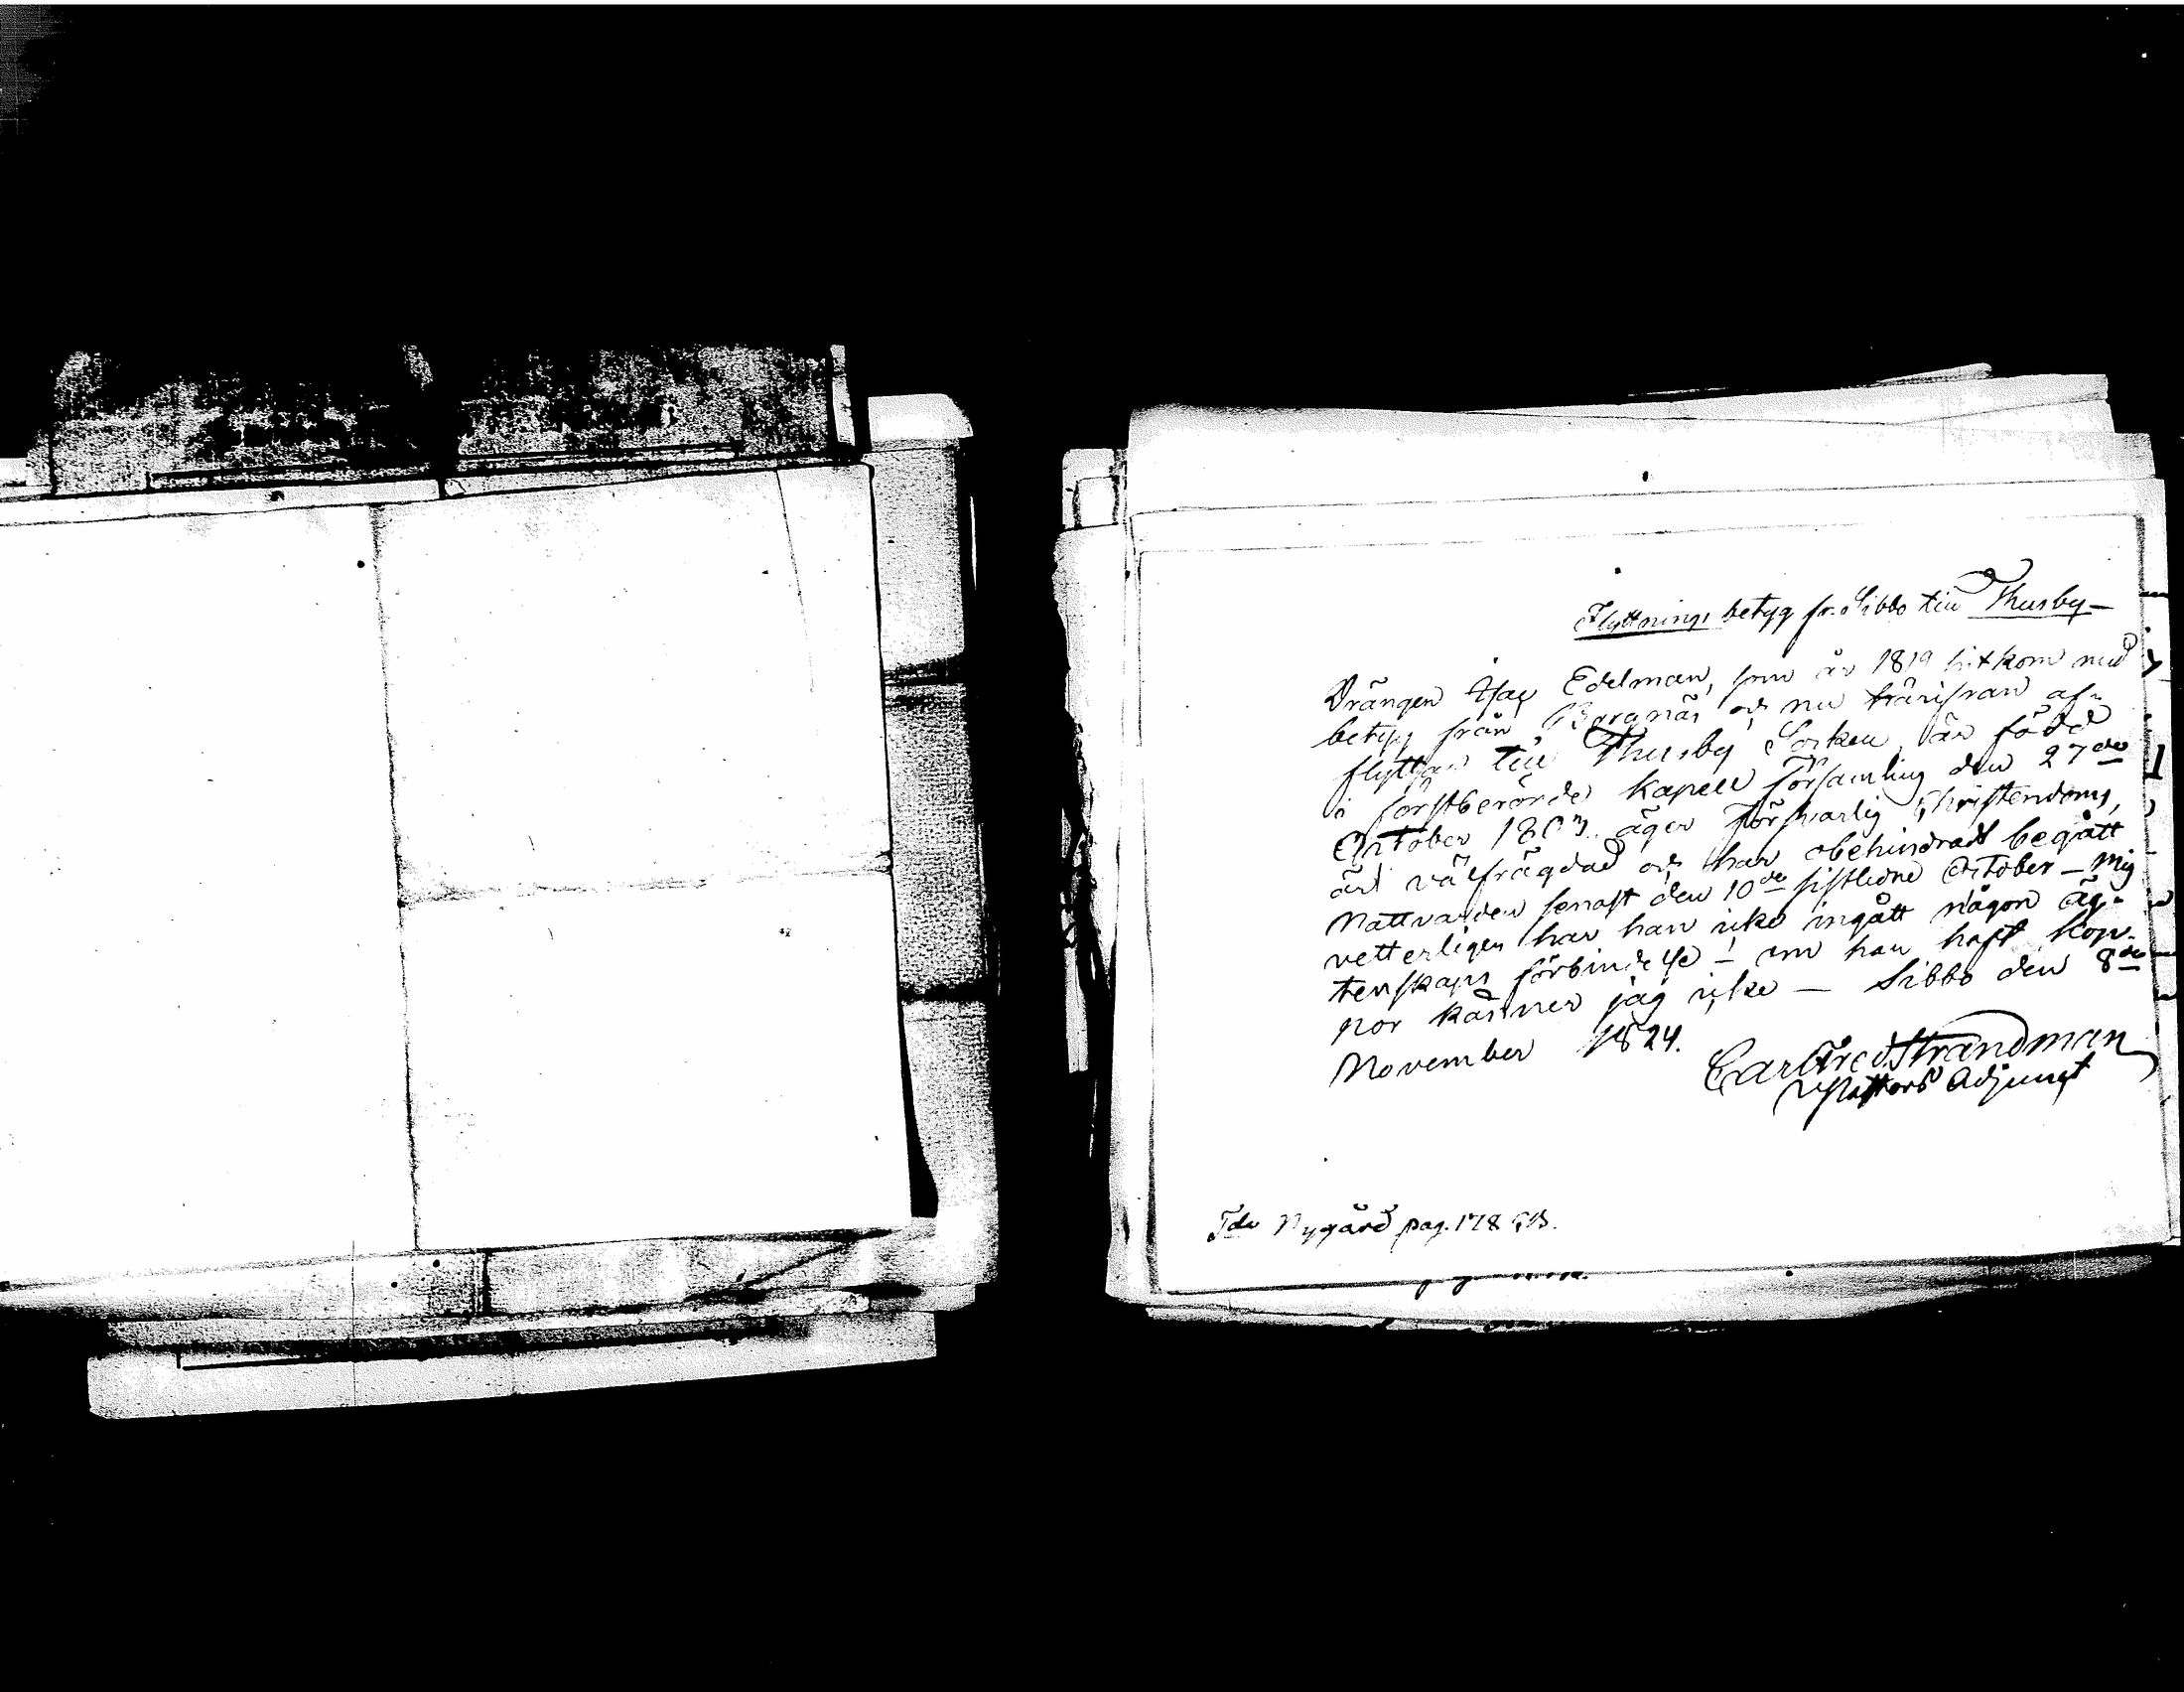 Flyttnings betyg fr. Sibbo till Thusby —
Drängen Isac Edelman, som år 1819 hitkom med
betyg från Borgnäs och nu härifrån af-
flyttar till Thusby Socken, är född
i förstberörde Kapell Församling den 27de
October 1803. äger försvarlig Christendoms,
är välfrägdad och har obehindradt begått
Nattvarden senast den 10de sistledne October — Mig
vetterligen har han icke ingått någon äg-
tenskaps förbindelse — om han haft Kop-
por känner jag icke — Sibbo den 8de
November 1824.
Carl Fred. Strandman
Pastors Adjunct
Nygård pag. 178